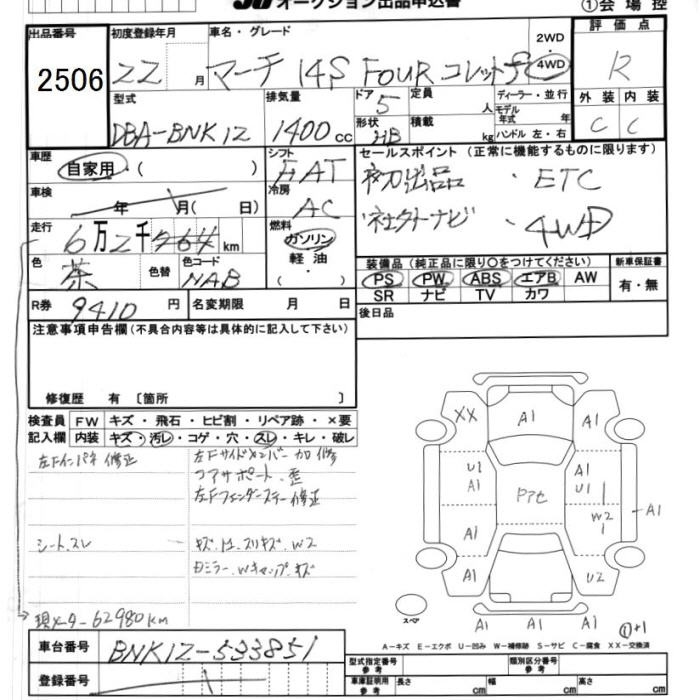 オークション出品申込書
①会場控
出品番号
2506
初度登録年月
22 月
車名・グレード
マーチ 14S FOUR コレット
2WD
4WD
評価点
R
型式
DBA-BNK12
排気量
1400cc
ドア
5
形状
HB
定員
人
積載
kg
ディーラー・並行
モデル年式 年
ハンドル 左・右
外装
C
内装
C
車歴
自家用・( )
シフト
FAT
セールスポイント (正常に機能するものに限ります)
初出品 ・ETC
社外ナビ ・4WD
車検
年 月( 日)
冷房
AC
走行
6万2千 km
燃料
ガソリン
軽油
( )
色
茶
色替
色コード
NAB
装備品 (純正品に限り○をつけてください)
PS PW ABS エアB AW
SR ナビ TV カワ
新車保証書
有・無
R券
9410円
名変期限 月 日
後日品
注意事項申告欄(不具合内容等は具体的に記入して下さい)
修復歴 有〔箇所 〕
検査員記入欄
FW キズ・飛石・ヒビ割・リペア跡・×要
内装 キズ・汚レ・コゲ・穴・スレ・キレ・破レ
左Fインパネ 修正
左Fサイドメンバー 加修
コアサポート 歪
左Fフェンダーステー 修正
シート.スレ
キズ.凹.スリキズ.W2
Dミラー.Wキャップ.キズ
現メーター62980km
XX
A1
A1
U1
A1
A1
U1
W2
A1
A1
A1
A1
U2
A1
A1
スペア
A-キズ E-エクボ U-凹み W-補修跡 S-サビ C-腐食 XX-交換済
車台番号
BNK12-533851
登録番号
型式指定番号
参考
類別区分番号
参考
車庫証明用
参考
長さ cm
幅 cm
高さ cm